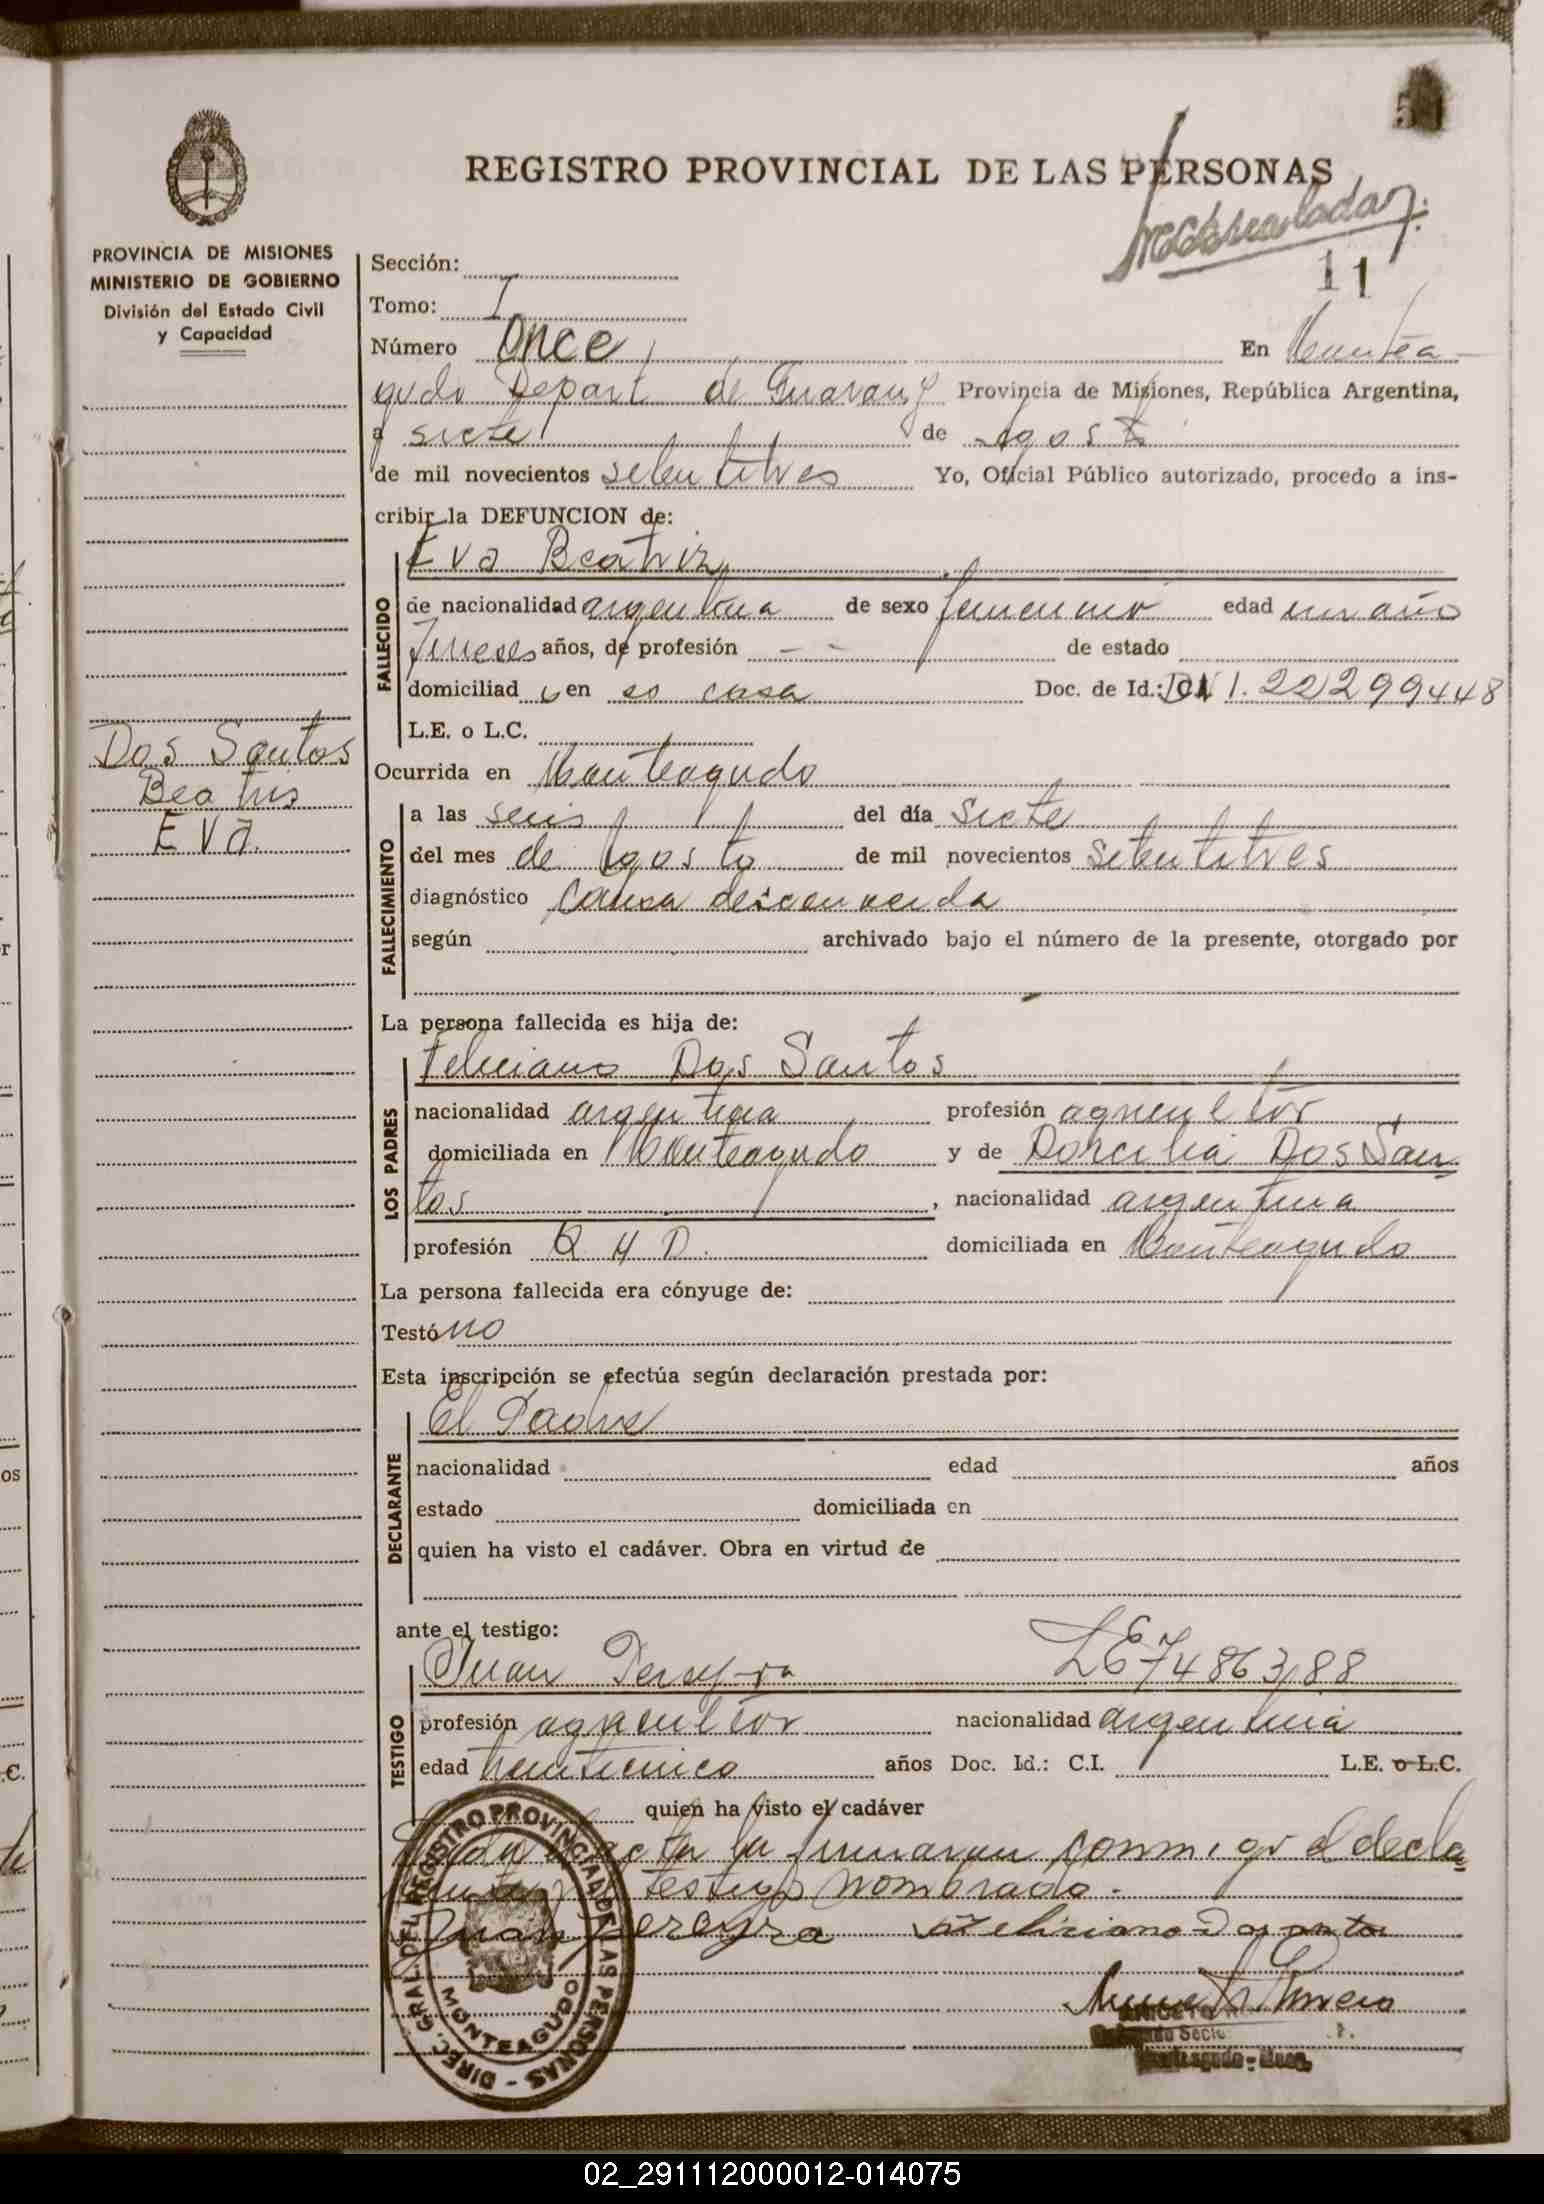 REGISTRO PROVINCIAL DE LAS PERSONAS
11
PROVINCIA DE MISIONES
MINISTERIO DE GOBIERNO
División del Estado Civil
y Capacidad
Sección:
Tomo: I
Número Once En Montea
gudo Depart de Guarany Provincia de Misiones, República Argentina,
a siete de Agosto
de mil novecientos setentitres Yo, Oficial Público autorizado, procedo a ins-
cribir la DEFUNCION de:
Eva Beatriz
FALLECIDO
de nacionalidad argentina de sexo femenino edad un año
meses años, de profesión - - de estado
domiciliad o en es casa Doc. de Id.: DNI. 22299448
L.E. o L.C.
Dos Santos
Beatris
Eva.
Ocurrida en Monteagudo
FALLECIMIENTO
a las seis del día siete
del mes de Agosto de mil novecientos setentitres
diagnóstico causa desconocida
según archivado bajo el número de la presente, otorgado por
La persona fallecida es hija de:
Feliciano Dos Santos
LOS PADRES
nacionalidad argentina profesión agricultor
domiciliada en Monteagudo y de Dorcilia Dos San
tos, nacionalidad argentina
profesión Q H D. domiciliada en Monteagudo
La persona fallecida era cónyuge de:
Testó no
Esta inscripción se efectúa según declaración prestada por:
El Padre
DECLARANTE
nacionalidad edad años
estado domiciliada en
quien ha visto el cadáver. Obra en virtud de
ante el testigo:
Juan Pereyra LE 7486388
TESTIGO
profesión agricultor nacionalidad argentina
edad treinticinco años Doc. Id.: C.I. L.E. o L.C.
quien ha visto el cadáver
acta la firmaran conmigo el decla
testigo nombrado.-
Juan Pereyra Feliciano Dos Santos
DIREC. GRAL. DEL REGISTRO PROVINCIAL DE LAS PERSONAS -
MONTEAGUDO
02_291112000012-014075